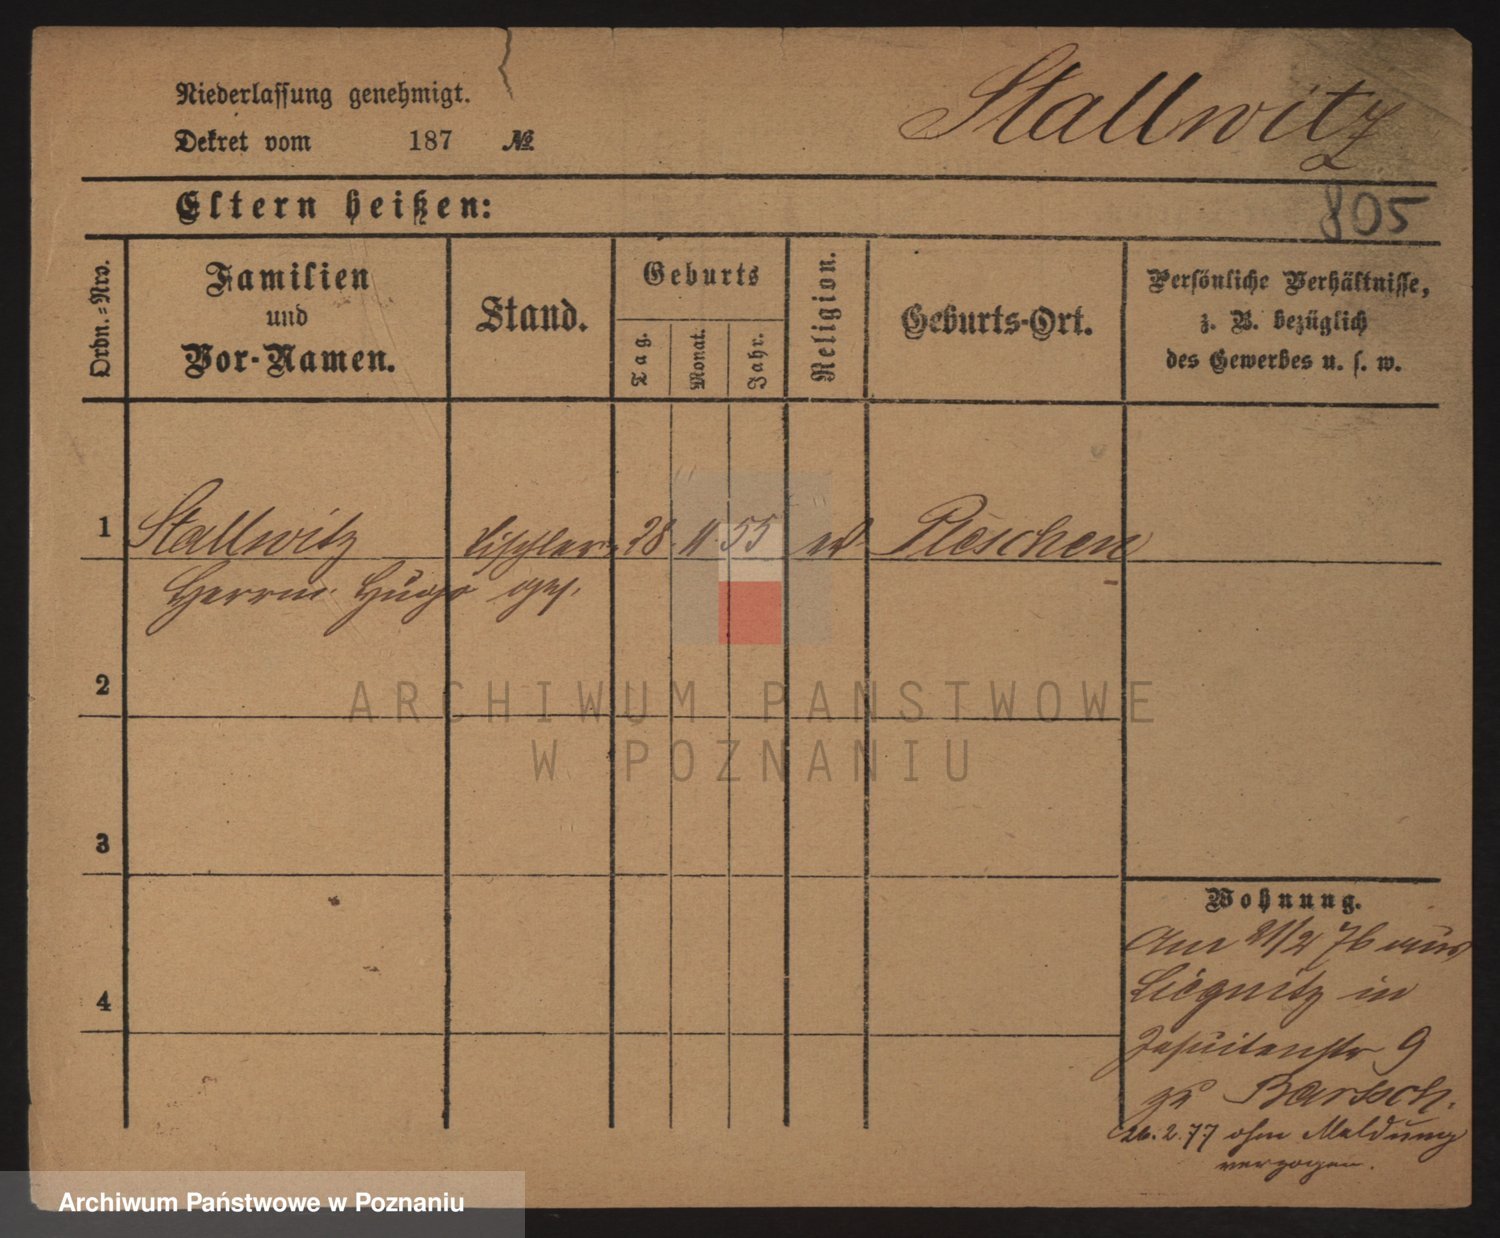 Niederlassung genehmigt.
Dekret vom 187 №
Stallwitz
Eltern heißen:
805
Ordn.-Nro.
Familien
und
Vor-Namen.
Stand.
Geburts
Tag.
Monat.
Jahr.
Religion.
Geburts-Ort.
Persönliche Verhältnisse,
z. B. bezüglich
des Gewerbes u. s. w.
1 Stallwitz Tischler 28. 11. 55 Pleschen
Herrm. Hugo ges.
2
ARCHIWUM PAŃSTWOWE
W POZNANIU
3
Wohnung.
Am 21/2 76 aus
Liegnitz in
4
Jesuitenstr 9
zu Bartsch.
26.2.77 ohne Meldung
verzogen.
Archiwum Państwowe w Poznaniu